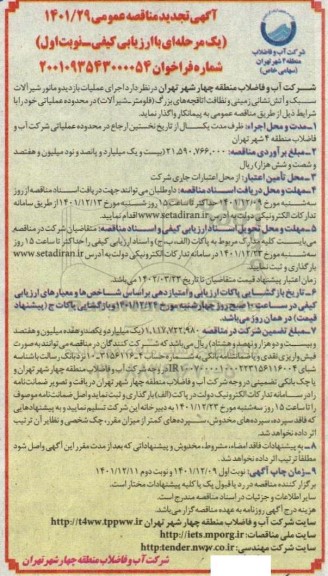 آگهی تجدید مناقصه عمومی ۱۴۰۱/۲۹
(یک مرحله‌ای با ارزیابی کیفی_نوبت اول)
شماره فراخوان ۲۰۰۱۰۹۳۵۴۳۰۰۰۰۵۴
شرکت آب و فاضلاب
منطقه ۴ شهر تهران
(سهامی خاص)
شرکت آب و فاضلاب منطقه چهار شهر تهران در نظر دارد اجرای عملیات بازدید و مانور شیرآلات
سبک و آتش‌نشانی زمینی و نظافت اتاقچه‌های بزرگ (فلومتر_شیرآلات) در محدوده عملیاتی خود را با
شرایط ذیل از طریق مناقصه عمومی به پیمانکار واگذار نماید.
۱_مدت و محل اجراء: ظرف مدت یکسال از تاریخ نخستین ارجاع در محدوده عملیاتی شرکت آب و
فاضلاب منطقه ۴ شهر تهران
۲_مبلغ برآوردی مناقصه: ۲۱،۵۹۰،۷۶۶،۰۰۰ (بیست و یک میلیارد و پانصد و نود میلیون و هفتصد
و شصت و شش هزار) ریال
۳_محل تأمین اعتبار: از محل اعتبارات جاری شرکت
۴_مهلت و محل دریافت اسناد مناقصه: داوطلبان می‌توانند جهت دریافت اسناد مناقصه از روز
سه‌شنبه مورخ ۱۴۰۱/۱۲/۰۹ حداکثر تا ساعت ۱۵ روز شنبه مورخ ۱۴۰۱/۱۲/۱۳ از طریق سامانه
تدارکات الکترونیکی دولت به آدرس www.setadiran.ir اقدام نمایند.
۵_مهلت و محل تحویل اسناد ارزیابی کیفی و اسناد مناقصه: متقاضیان شرکت در مناقصه
می‌بایست کلیه مدارک مربوط به پاکات (الف_ب_ج) و اسناد ارزیابی کیفی را حداکثر تا ساعت ۱۵ روز
سه‌شنبه مورخ ۱۴۰۱/۱۲/۲۳ در سامانه تدارکات الکترونیکی دولت به آدرس www.setadiran.ir
بارگذاری و ثبت نمایند.
زمان اعتبار پیشنهاد قیمت متقاضیان تا تاریخ ۱۴۰۲/۰۳/۲۳ می‌باشد.
۶_تاریخ بازگشایی پاکات ارزیابی و امتیازدهی براساس شاخص‌ها و معیارهای ارزیابی
کیفی در ساعت ۱۰ صبح روز چهارشنبه مورخ ۱۴۰۱/۱۲/۲۴ و بازگشایی پاکات ج (پیشنهاد
قیمت) در همان روز می‌باشد.
۷_مبلغ تضمین شرکت در مناقصه ۱،۱۱۷،۷۲۲،۹۸۰ (یک میلیارد و یکصد و هفده میلیون و هفتصد
و بیست و دو هزار و نهصد و هشتاد) ریال می‌باشد که شرکت‌کنندگان در مناقصه می‌توانند به صورت
فیش واریزی نقدی و یا ضمانتنامه بانکی به شماره حساب
شبای در وجه شرکت آب و فاضلاب منطقه چهار شهر تهران و
یا چک بانکی تضمینی در وجه شرکت آب و فاضلاب منطقه چهار شهر تهران دریافت و تصویر ضمانت‌نامه
را در سامانه تدارکات الکترونیکی دولت در پاکت (الف) بارگذاری و ثبت نماید و اصل ضمانت‌نامه موصوف
را تا ساعت ۱۵ روز سه‌شنبه مورخ ۱۴۰۱/۱۲/۲۳ به دبیرخانه این شرکت تسلیم نمایند و به پیشنهادهایی
که فاقد سپرده، سپرده‌های مخدوش، سپرده‌های کمتر از میزان مقرر، چک شخصی و نظایر آن ترتیب
اثر داده نخواهد شد.
۸_به پیشنهادات فاقد امضاء، مشروط، مخدوش و پیشنهاداتی که بعد از مدت مقرر این آگهی واصل شود
مطلقا ترتیب اثر داده نخواهد شد.
۹_زمان چاپ آگهی: نوبت اول ۱۴۰۱/۱۲/۰۹ و نوبت دوم ۱۴۰۱/۱۲/۱۱
برگزار کننده مناقصه در رد یا قبول یک یا کلیه پیشنهادات مختار است.
سایر اطلاعات و جزئیات در اسناد مناقصه مندرج است.
هزینه درج آگهی روزنامه به عهده مناقصه گزار می‌باشد.
سایت شرکت آب و فاضلاب منطقه چهار شهر تهران http://t4ww.tppww.ir
سایت ملی مناقصات: http://iets.mporg.ir
سایت شرکت مهندسی: http:tender.nww.co.ir
شرکت آب و فاضلاب منطقه چهار شهر تهران